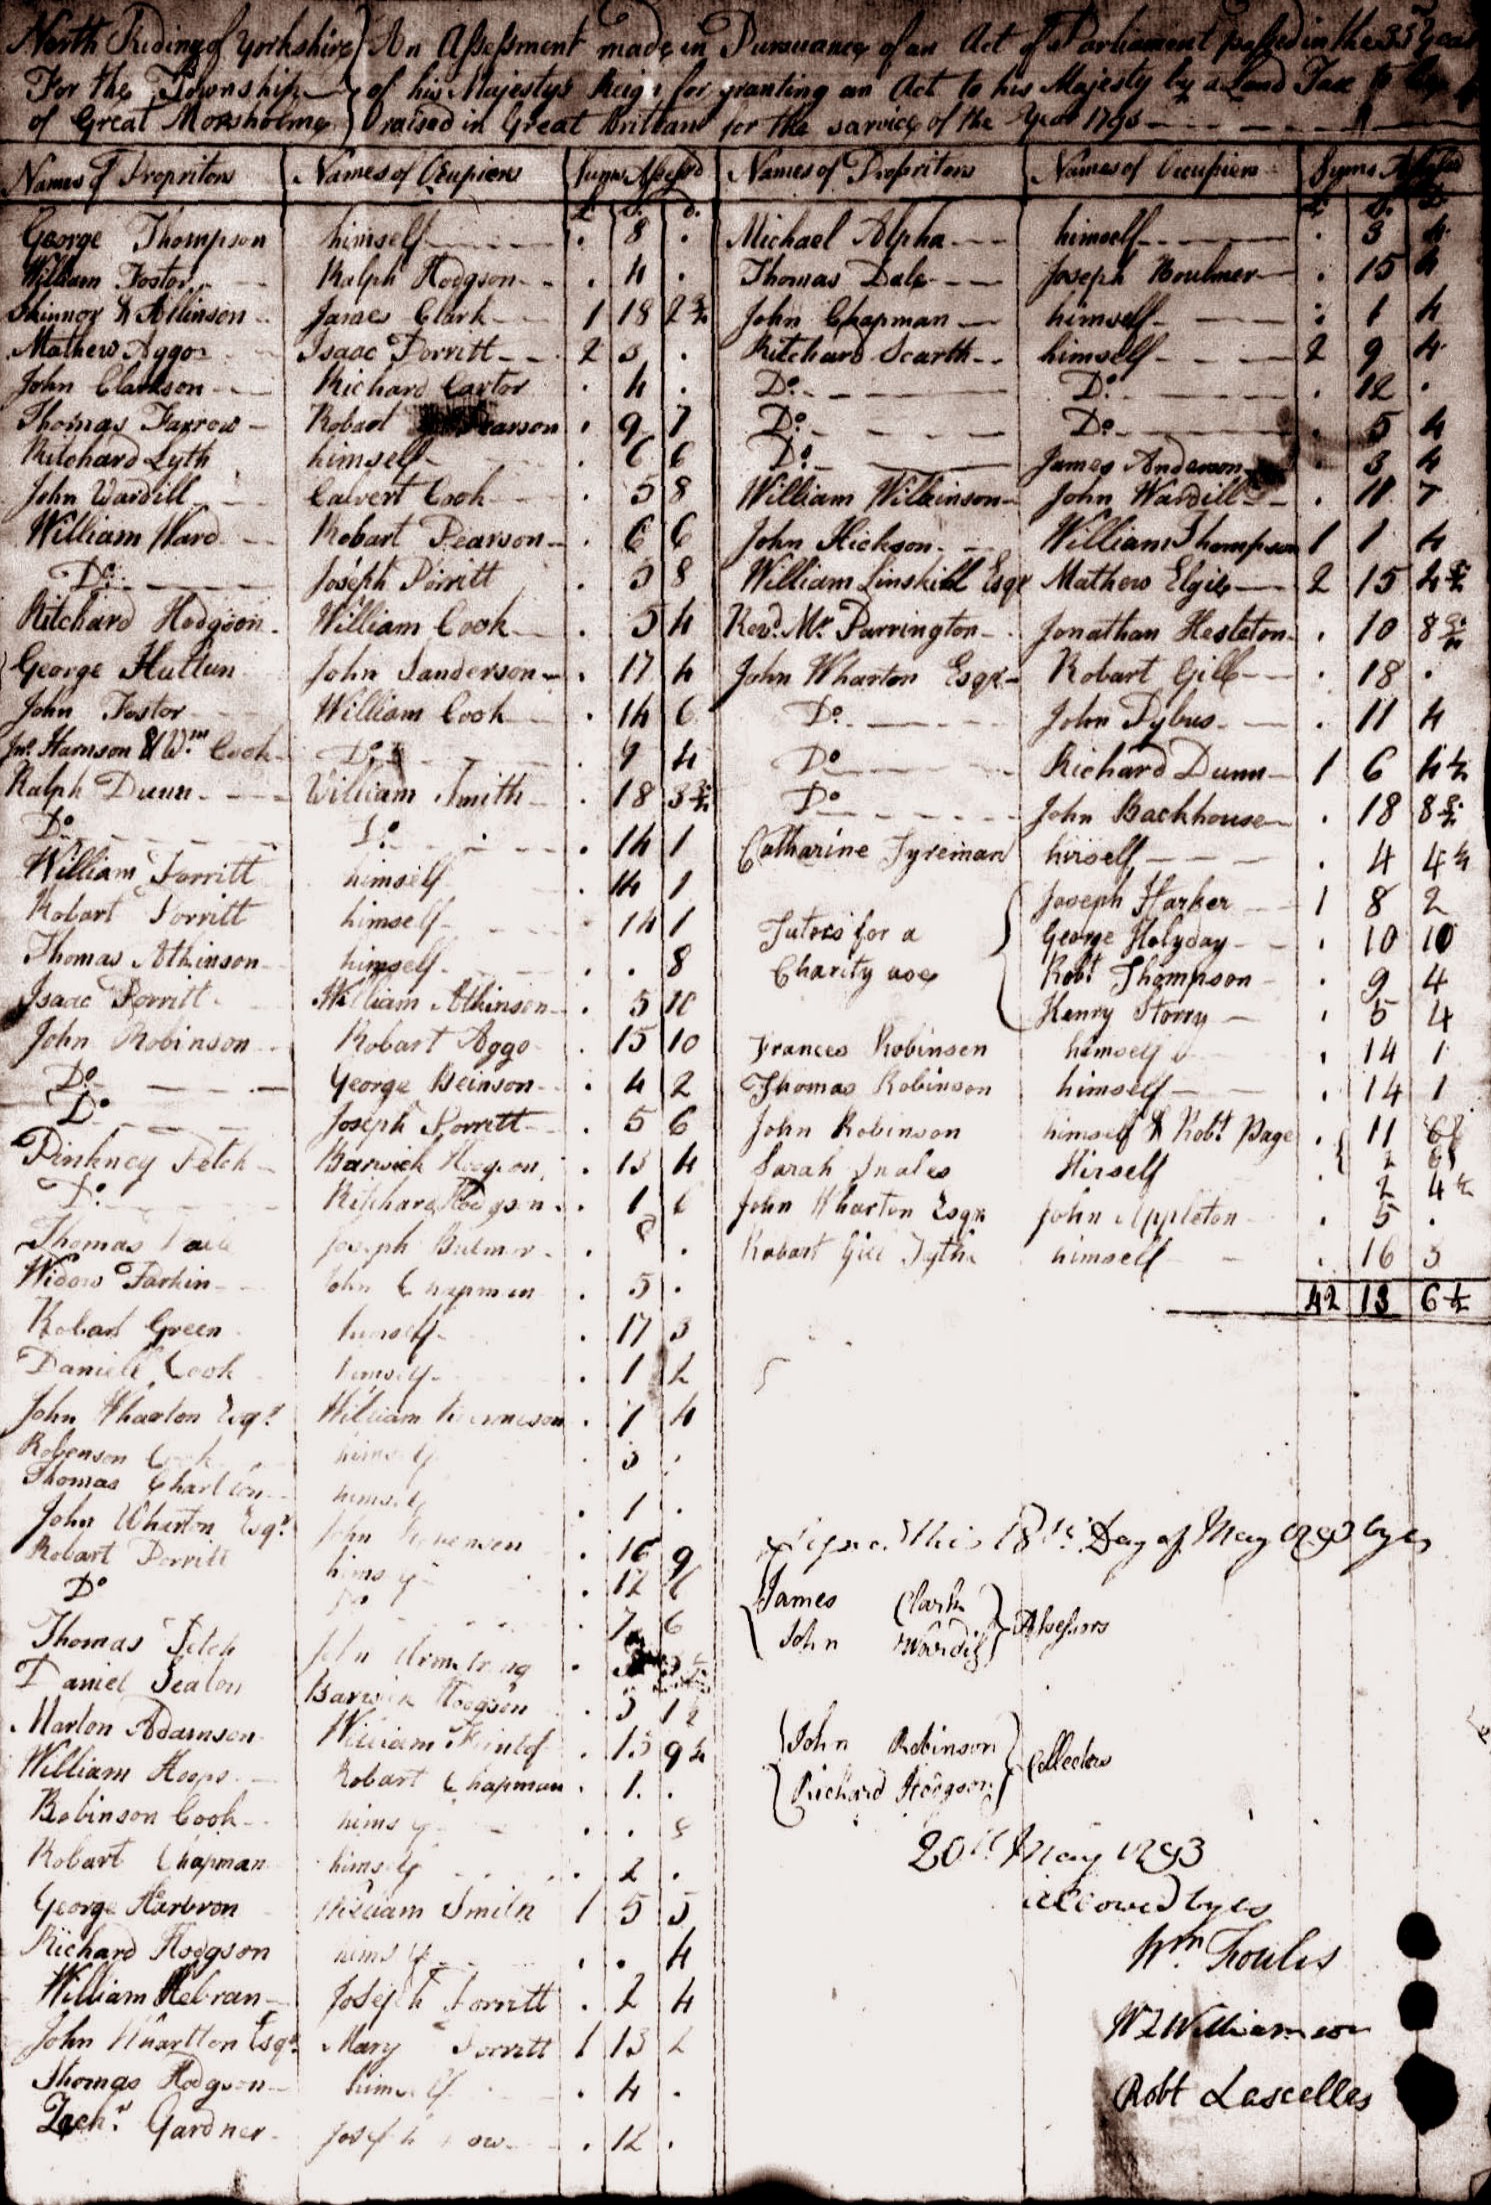 North Riding of Yorkshire } An Assessment made in Pursuance of an Act of Parliament passed in the 33 Year
For the Township of his Majestys Reign for granting an Act to his Majesty by a Land Tax to be
of Great Morsholme } raised in Great Brittan for the sarvice of the Year 1793
Names of Propritors Names of Ocupiers Sums Assessd Names of Propritors Names of Occupiers Sums Assessed
£ S. d. £ S. D
George Thompson himself . 8 . Michael Alpha himself . 3 4
William Fostor Ralph Hodgson . 4 . Thomas Dale Joseph Boulmer . 15 4
Skinnor & Allinson James Clark 1 18 2 John Chapman himself . 1 4
Mathew Aggor Isaac Porritt 2 3 . Ritchard Scarth himself 2 9 4
John Clarkson Richard Cartor . 4 . Do. Do. . 12 .
Thomas Farrow Robart Pearson . 9 7 Do. Do. . 5 4
Ritchard Lyth himself . 6 6 Do. James Anderson . 3 4
John Wardill Calvert Cook . 5 8 William Wilkinson John Wardill . 11 7
William Ward Robart Pearson . 6 6 John Hickson William Thompson 1 1 4
Do. Joseph Porritt . 5 8 William Linskill Esqr Mathew Elgie 2 15 4
Ritchard Hodgson William Cook . 5 4 Revd. Mr Parrington Jonathan Hesleton . 10 8
George Huttun John Sanderson . 17 4 John Wharton Esqr Robart Gill . 18 .
John Fostor William Cook . 14 6 Do John Pybus . 11 4
Jno. Harrison & Wm Cook Do. . 9 4 Do Richard Dunn 1 6 4½
Ralph Dunn William Smith . 18 3 Do John Backhouse . 18 8
Do Do . 14 1 Catharine Tyreman hirself . 4 4
William Porritt himself . 14 1 Joseph Harker 1 8 2
Robart Porritt himself . 14 1 Tutors for a George Holyday . 10 10
Thomas Atkinson himself . . 8 Charity use Robt Thompson . 9 4
Isaac Porritt William Atkinson . 5 10 Henry Storry . 5 4
John Robinson Robart Aggo . 15 10 Frances Robinson himself . 14 1
Do. George Beinson . 4 2 Thomas Robinson himself . 14 1
Do Joseph Porritt . 5 6 John Robinson himself & Robt Page . 11
Pinkney Petch Barwick Hogson . 13 4 Sarah Hirself . 2 4½
Do. Ritchard Hodgson . 1 6 John Wharton Esqr John Appleton . 5 .
Thomas Dale Joseph Bulmer . 8 . Robart Gill Tythe himself . 16 3
Widow Parkin John Chapman . 5 . 42 13 6½
Robart Green himself . 17 3
Daniell Cook himself . 1 2
John Wharton Esqr William . 1 4
Robenson Cook himself . 3 .
Thomas Charlton himself . 1 .
John Wharton Esqr John . 16 9
Robart Porritt himself . 12 6
Do Do . 7 6
Thomas Petch John Armstrong
Daniel Seaton Barwick Hogson . 3 1½
Marton Adamson William . 15 9
William Hoops Robart Chapman . 1 .
Robinson Cook himself . . 8
Robart Chapman himself . 2 .
George Harbron William Smith 1 5 5
Richard Hodgson himself . . 4
William Hebran Joseph Porritt . 2 4
John Whartton Esqr Mary Porritt 1 13 2
Thomas Hodgson himself . 4 .
Zachr Gardner Joseph . 12 .
Signed this 18th Day of May 1793 by us
James Clark
John Wardill } Assessors
John Robinson
Richard Hodgson } Collectors
20th May 1793
allowed by us
Wm. Foulis
W Z Williamson
Robt Lascelles